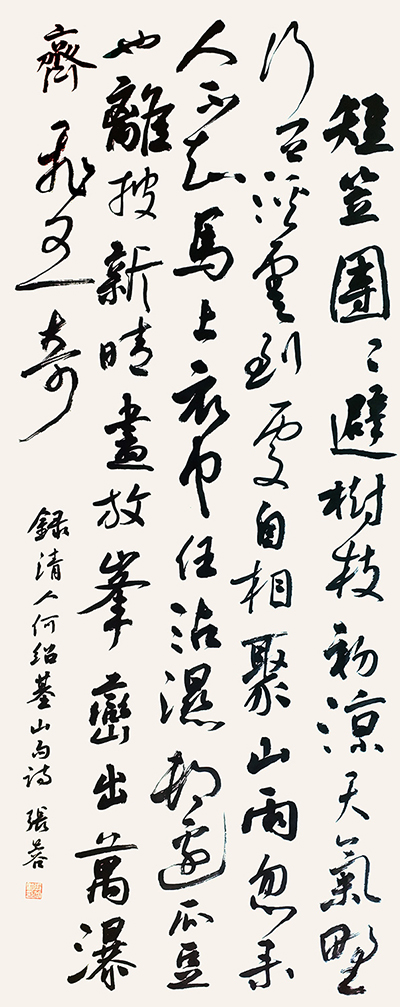 短笠團〻避樹枝初涼天氣野
行宜溪雲到處自相聚山雨忽来
人不知馬上衣巾任沾濕邨邊瓜豆
也離披新晴盡放峯巒出萬瀑
齊飛又一奇
録清人何紹基山雨詩 張